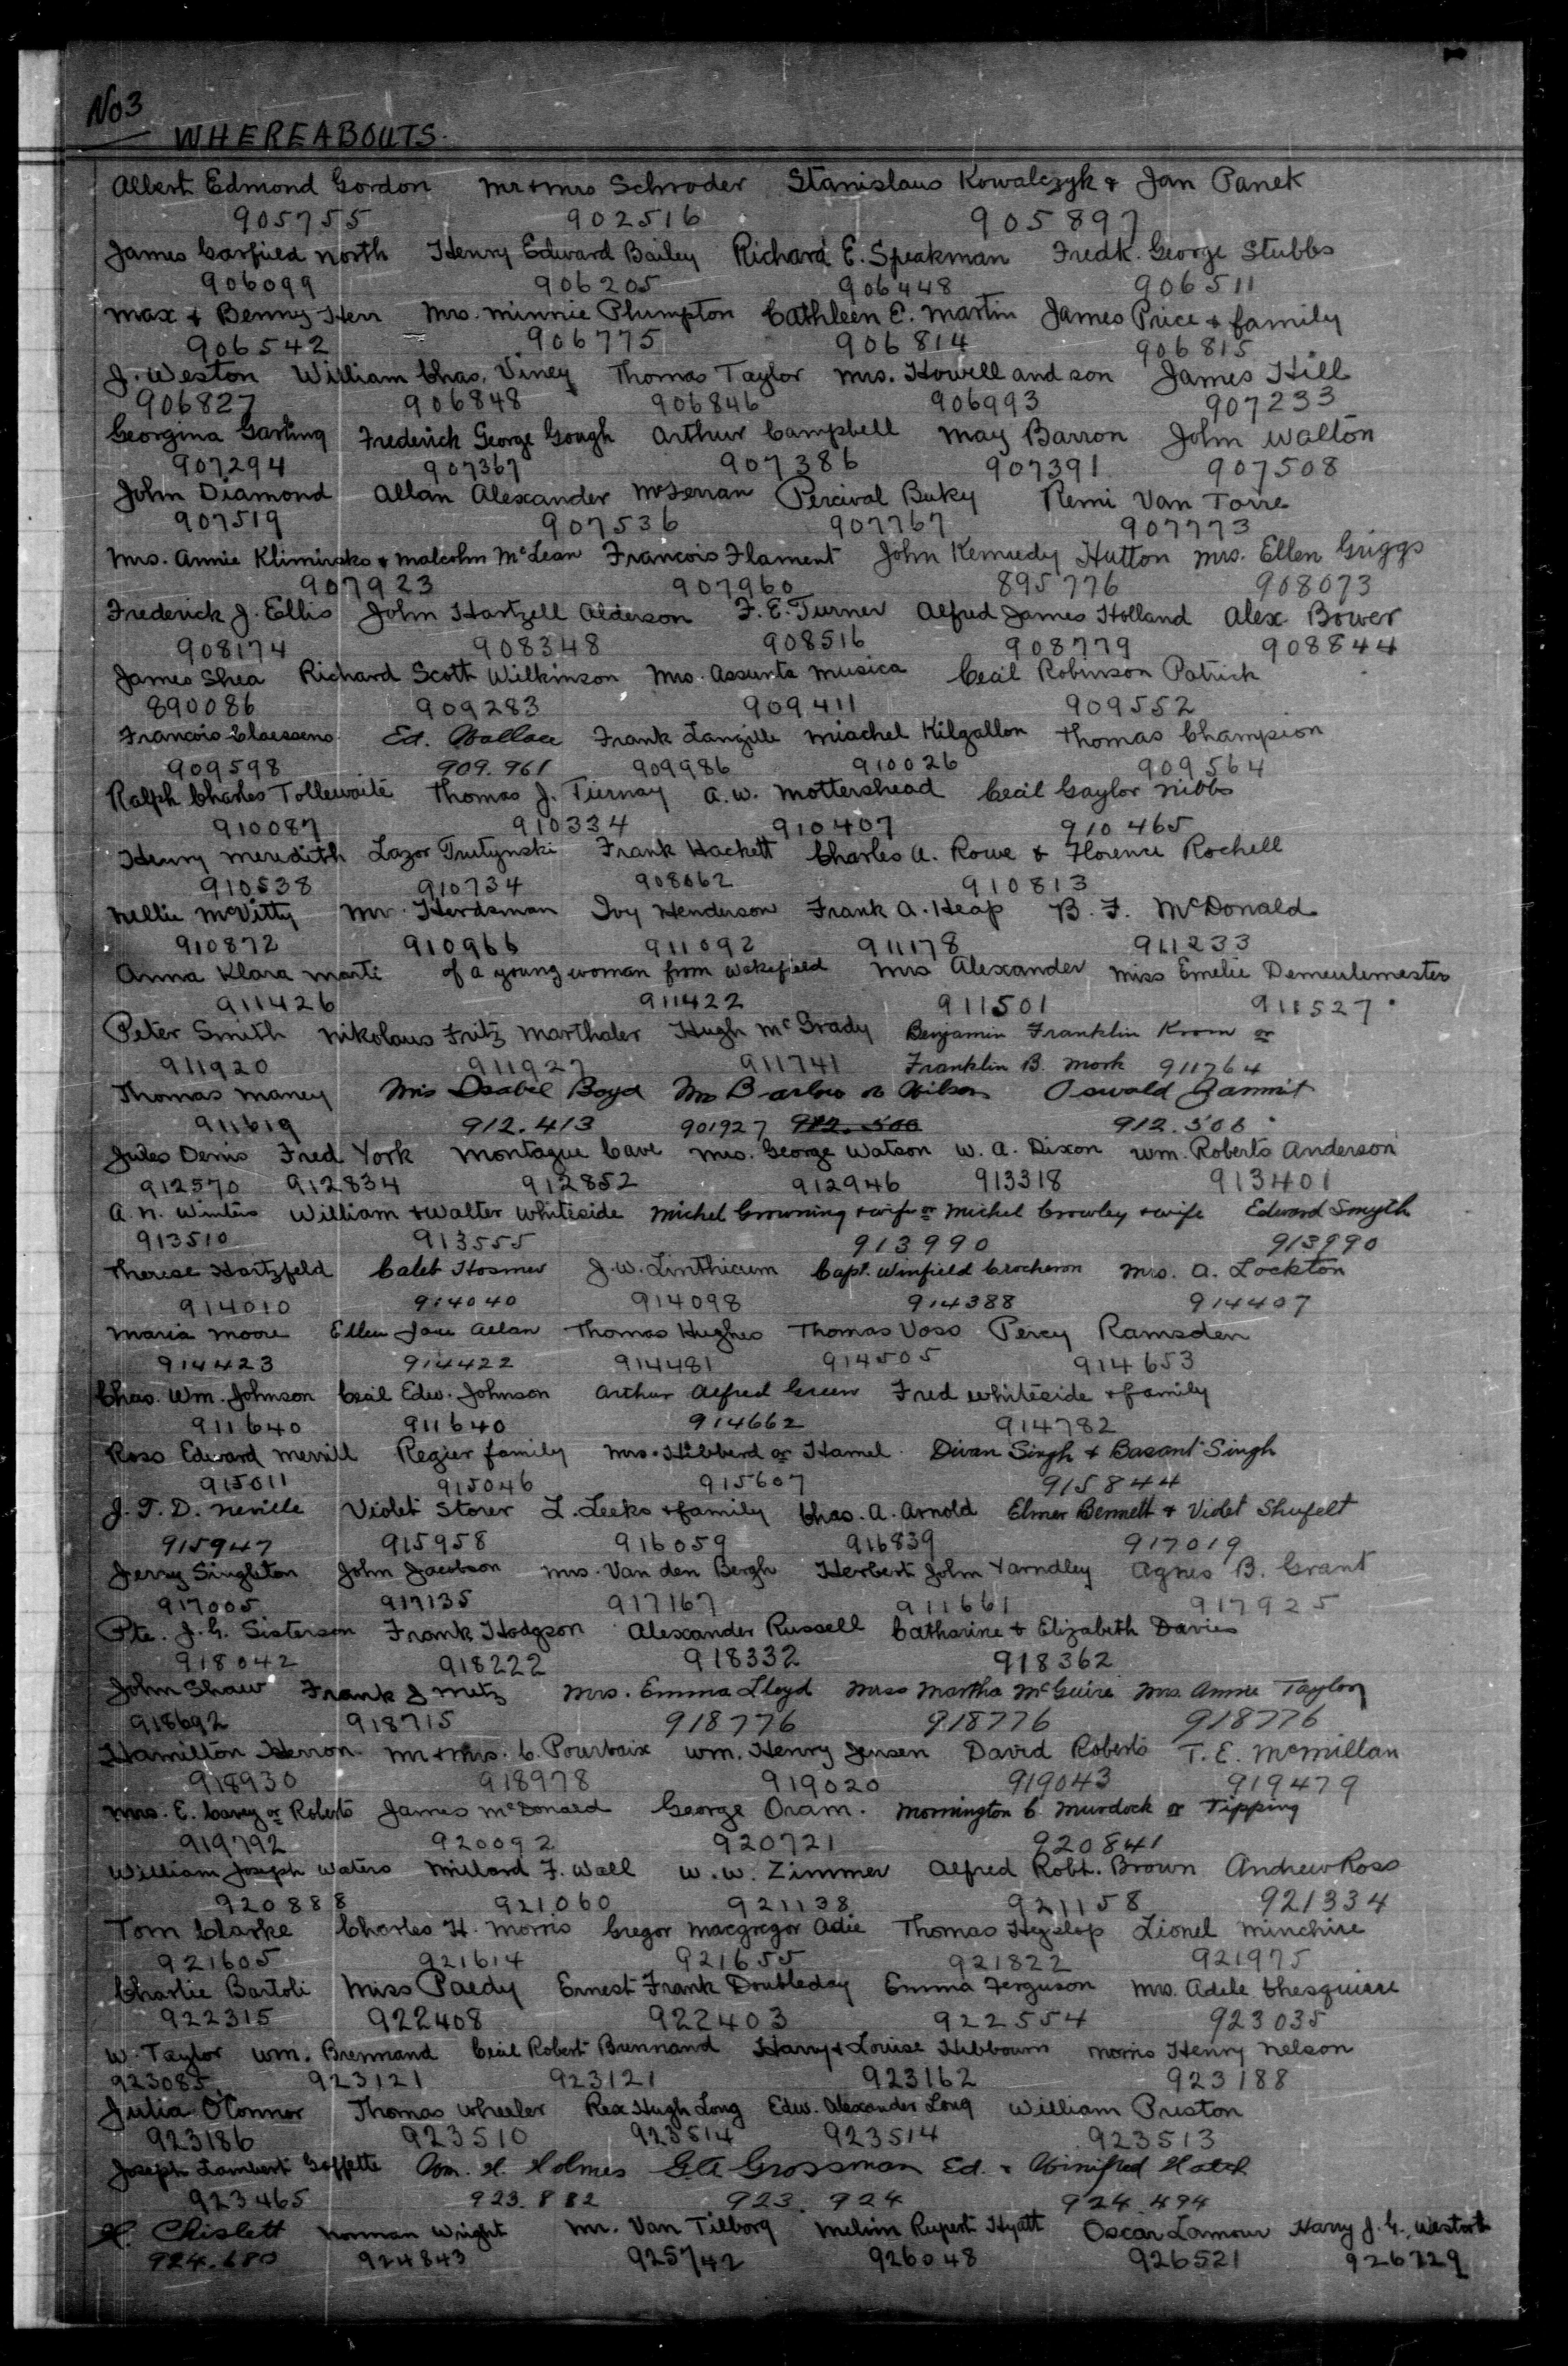 No 3
WHEREABOUTS.
Albert Edmond Gordon Mr + Mrs Schroder Stanislaus Kowalczyk & Jan Panek
905755 902516 905897
James Garfield North Henry Edward Bailey Richard E. Speakman Fredk. George Stubbs
906099 906205 906448 906511
Max & Benny Herr Mrs. Minnie Plumpton Cathleen E. Martin James Price & family
906542 906775 906814 906815
J. Weston William Chas. Viney Thomas Taylor Mrs. Howell and son James Hill
906827 906848 906846 906993 907233
Georgina Garling Frederick George Gough Arthur Campbell May Barron John Walton
907294 907367 907386 907391 907508
John Diamond Allan Alexander Percival Buky Remi Van Torre
907519 907536 907767 907773
Mrs. Annie Klimirsko & Malcolm McLean Francois Flament John Kennedy Hutton Mrs. Ellen Griggs
907923 907960 895776 908073
Frederick J. Ellis John Hartzell Alderson F. E. Turner Alfred James Holland Alex. Bower
908174 908348 908516 908779 908844
James Shea Richard Scott Wilkinson Mrs. Assunta Musica Cecil Robinson Patrick
890086 909283 909411 909552
Francois Claessens Ed. Wallace Frank Langille Miachel Kilgallon Thomas Champion
909598 909.961 909986 910026 909564
Ralph Charles Tollewaite Thomas J. Tiernay A. W. Mottershead Cecil Gaylor Nibbs
910087 910334 910407 910465
Henry Meredith Lazor Trutynski Frank Hackett Charles A. Rowe & Florence Rochell
910538 910734 908062 910813
Nellie McVitty Mr. Herdsman Ivy Henderson Frank A. Heap B. F. McDonald
910872 910966 911092 911178 911233
Anna Klara Marti of a young woman from Wakefield Mrs Alexander Miss Emelie Demeulemester
911426 911422 911501 911527
Peter Smith Nikolaus Fritz Marthaler Hugh McGrady Benjamin Franklin Krom or
911920 911927 911741 Franklin B. Mork 911764
Thomas Maney Mrs Isabel Boyd Mrs Barlow or Wilson Oswald Zammit
911619 912.413 901927 912.500 912.506
Jules Denis Fred York Montague Cave Mrs. George Watson W. A. Dixon Wm. Roberts Anderson
912570 912834 912852 912946 913318 913401
A. N. Winters William & Walter Whiteside Michel Growning & wife or Michel Crowley & wife Edward Smyth
913510 913555 913990 913990
Therese Hartzfeld Caleb Hosmer J. W. Linthicum Capt. Winfield Crocheron Mrs. A. Lockton
914010 914040 914098 914388 914407
Maria Moore Ellen Jane Allan Thomas Hughes Thomas Voss Percy Ramsden
914423 914422 914481 914505 914653
Chas. Wm. Johnson Cecil Edw. Johnson Arthur Alfred Green Fred Whiteside & family
911640 911640 914662 914782
Ross Edward Merrill Regier family Mrs. Hibberd or Hamel Divan Singh & Basant Singh
915011 915046 915607 915844
J. T. D. Neville Violet Storer L. Leeks & family Chas. A. Arnold Elmer Bennett & Violet Shufelt
915947 915958 916059 916839 917019
Jerry Singleton John Jacobson Mrs. Van den Bergh Herbert John Yarndley Agnes B. Grant
917005 917135 917167 911661 917925
Pte. J. G. Sisterson Frank Hodgson Alexander Russell Catharine & Elizabeth Davies
918042 918222 918332 918362
John Shaw Frank J Metz Mrs. Emma Lloyd Miss Martha McGuire Mrs. Annie Taylor
918692 918715 918776 918776 918776
Hamilton Herron Mr + Mrs. C. Pourbaix Wm. Henry Jensen David Roberts T. E. McMillan
918930 918978 919020 919043 919479
Mrs. E. Carey or Roberts James McDonald George Oram. Mornington C. Murdock or Tipping
919792 920092 920721 920841
William Joseph Waters Millard F. Wall W. W. Zimmer Alfred Robt. Brown Andrew Ross
920888 921060 921138 921158 921334
Tom Clarke Charles H. Morris Gregor Macgregor Adie Thomas Hyslop Lionel Minchire
921605 921614 921655 921822 921975
Charlie Bartoli Miss Paedy Ernest Frank Doubleday Emma Ferguson Mrs. Adele Chesquiere
922315 922408 922403 922554 923035
W. Taylor Wm. Brennand Cecil Robert Brennand Harry & Louise Hibbourn Morris Henry Nelson
923085 923121 923121 923162 923188
Julia O'Connor Thomas Wheeler Rex Hugh Long Edw. Alexander Long William Preston
923186 923510 923514 923514 923513
Joseph Lambert Goffette Wm. H. Holmes G.A Grossman Ed. & Winifred Hatch
923465 923.882 923.924 924.494
H. Chislett Norman Wright Mr. Van Tilborg Melvin Rupert Hyatt Oscar Lamour Harry J. G. Westork
924.680 924843 925742 926048 926521 926729